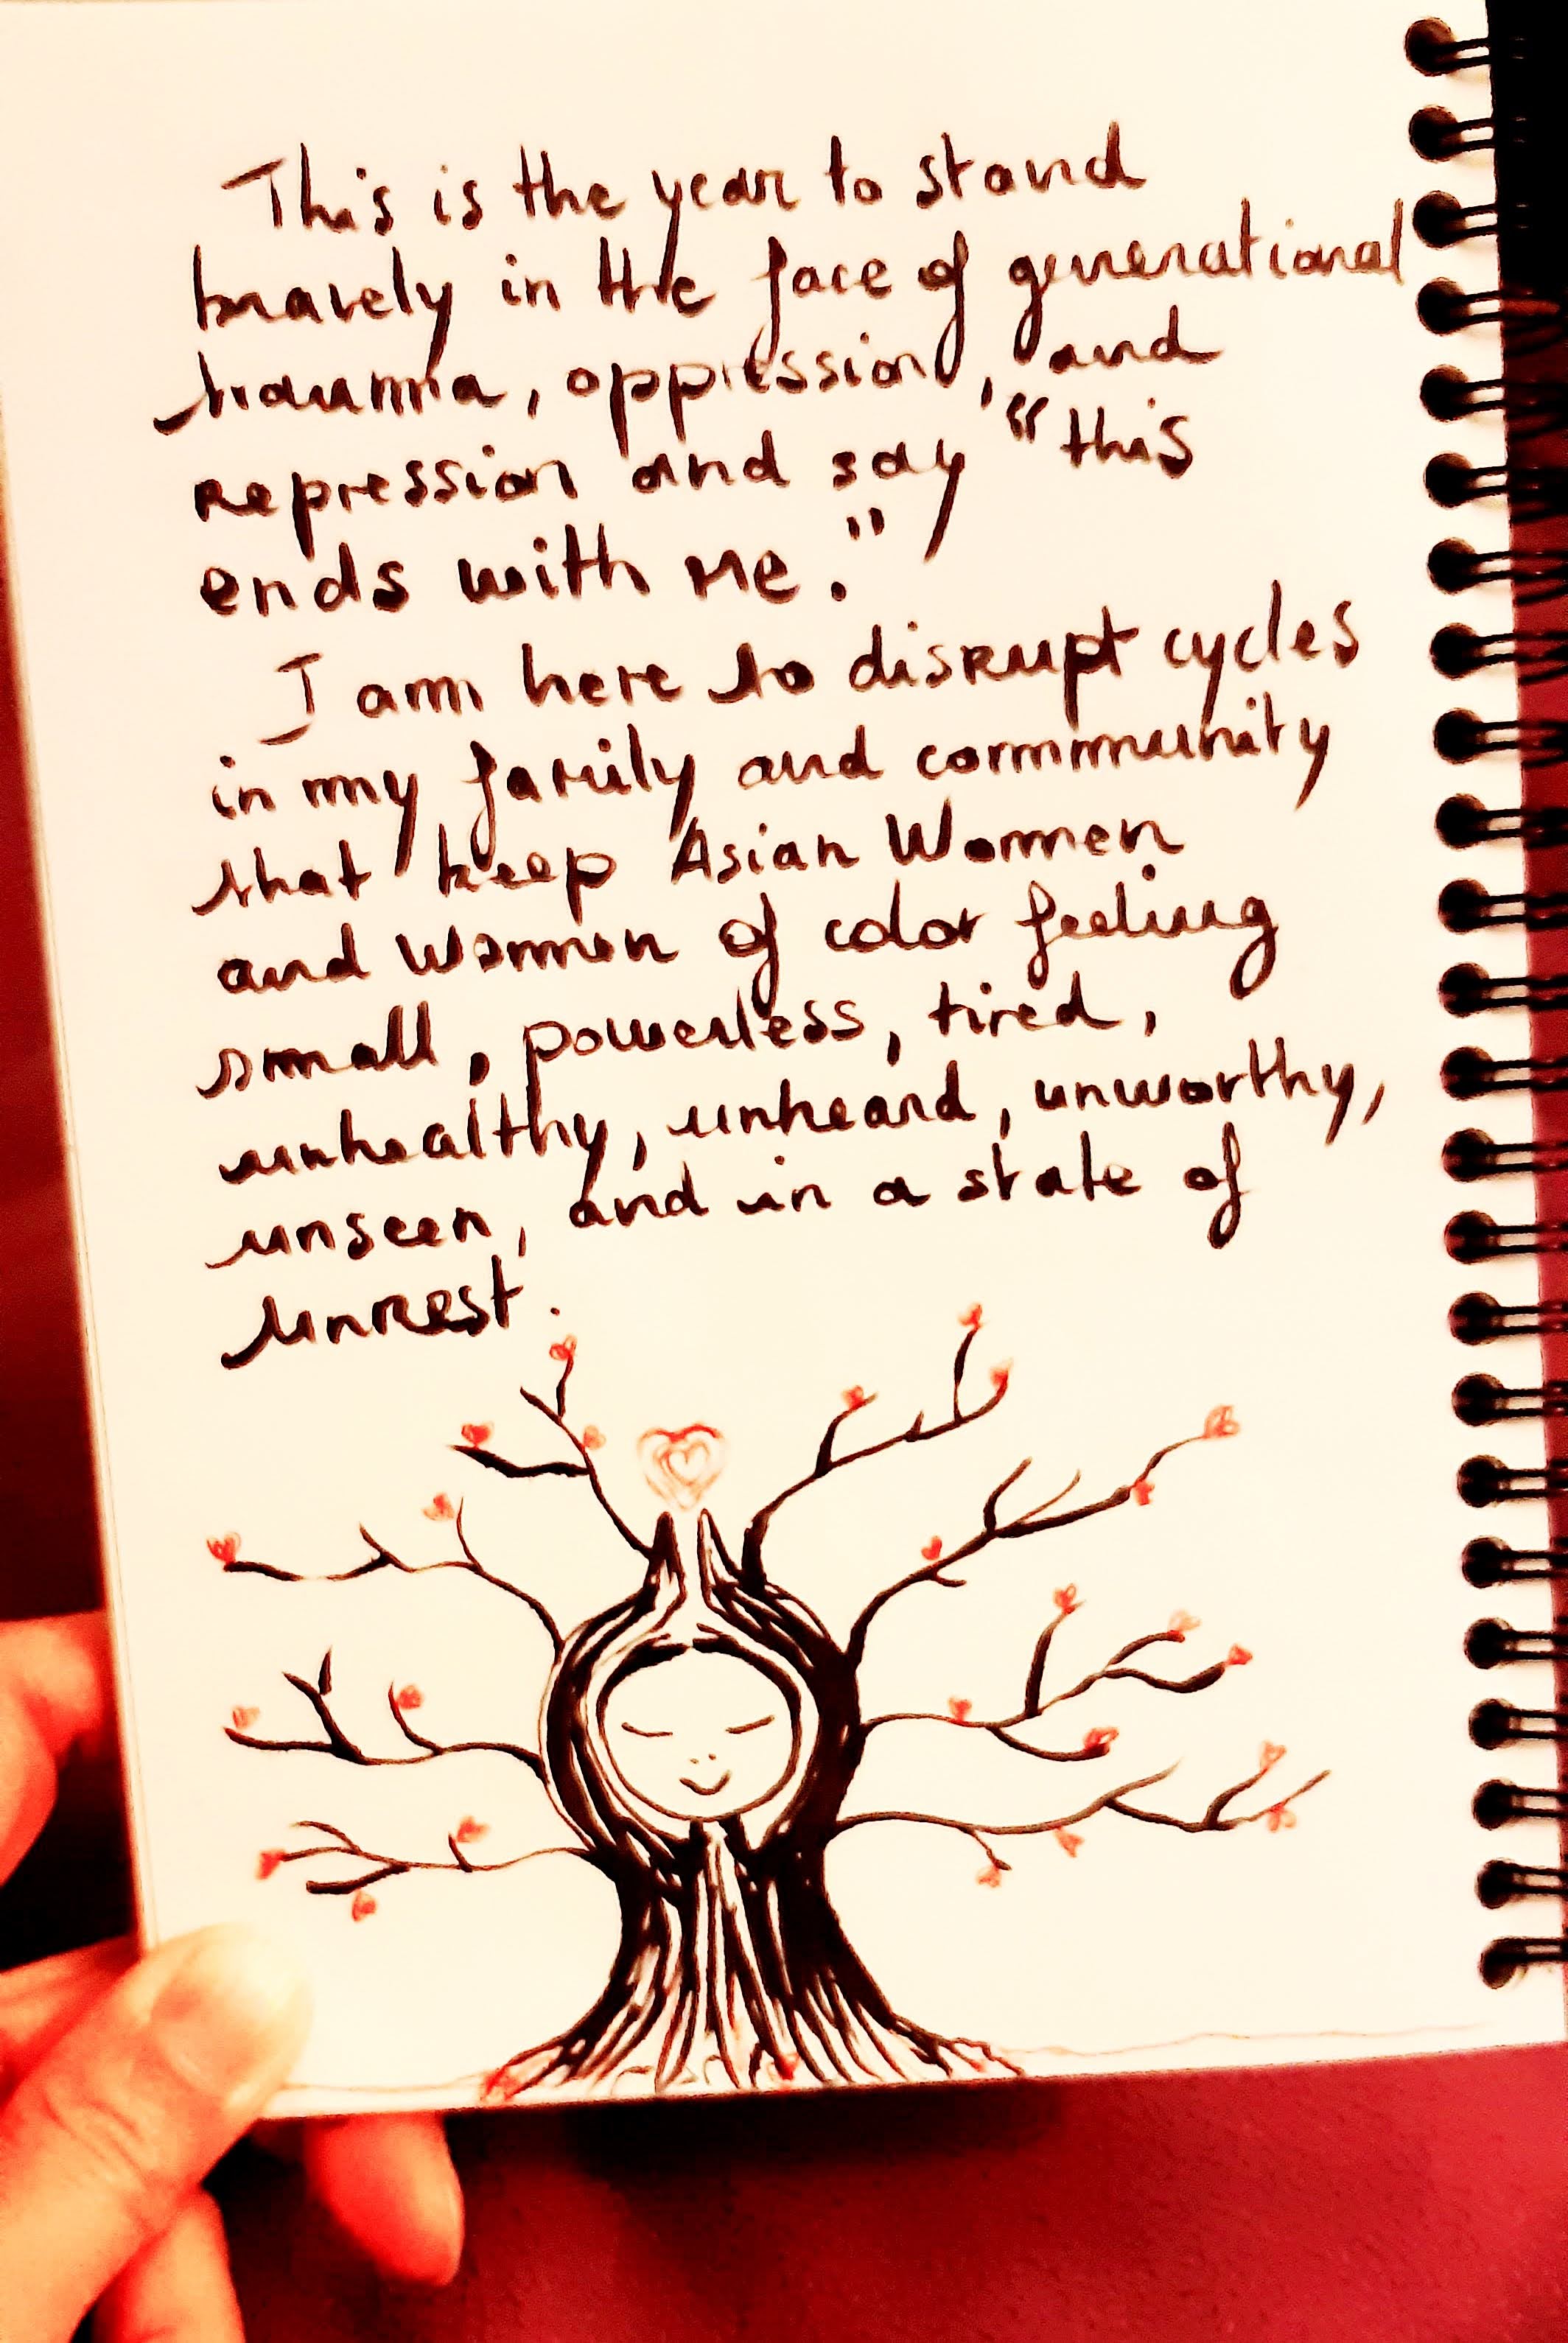 This is the year to stand
bravely in the face of generational
trauma, oppression, and
repression and say "this
ends with me."
I am here to disrupt cycles
in my family and community
that keep Asian Women
and women of color feeling
small, powerless, tired,
unhealthy, unheard, unworthy,
unseen, and in a state of
unrest.